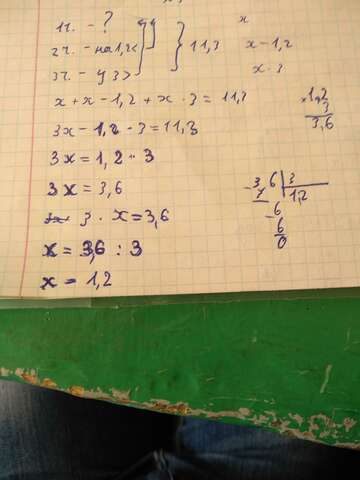 1ч. - ?
2ч. - на 1,2<
3ч. - у 3>
} 11,3
x
x - 1,2
x · 3
x + x - 1,2 + x · 3 = 11,3
3x - 1,2 · 3 = 11,3
3x = 1,2 · 3
3x = 3,6
3 · x = 3,6
x = 3,6 : 3
x = 1,2
× 1,2
3
3,6
- 3,6 | 3
1,2
- 6
6
0